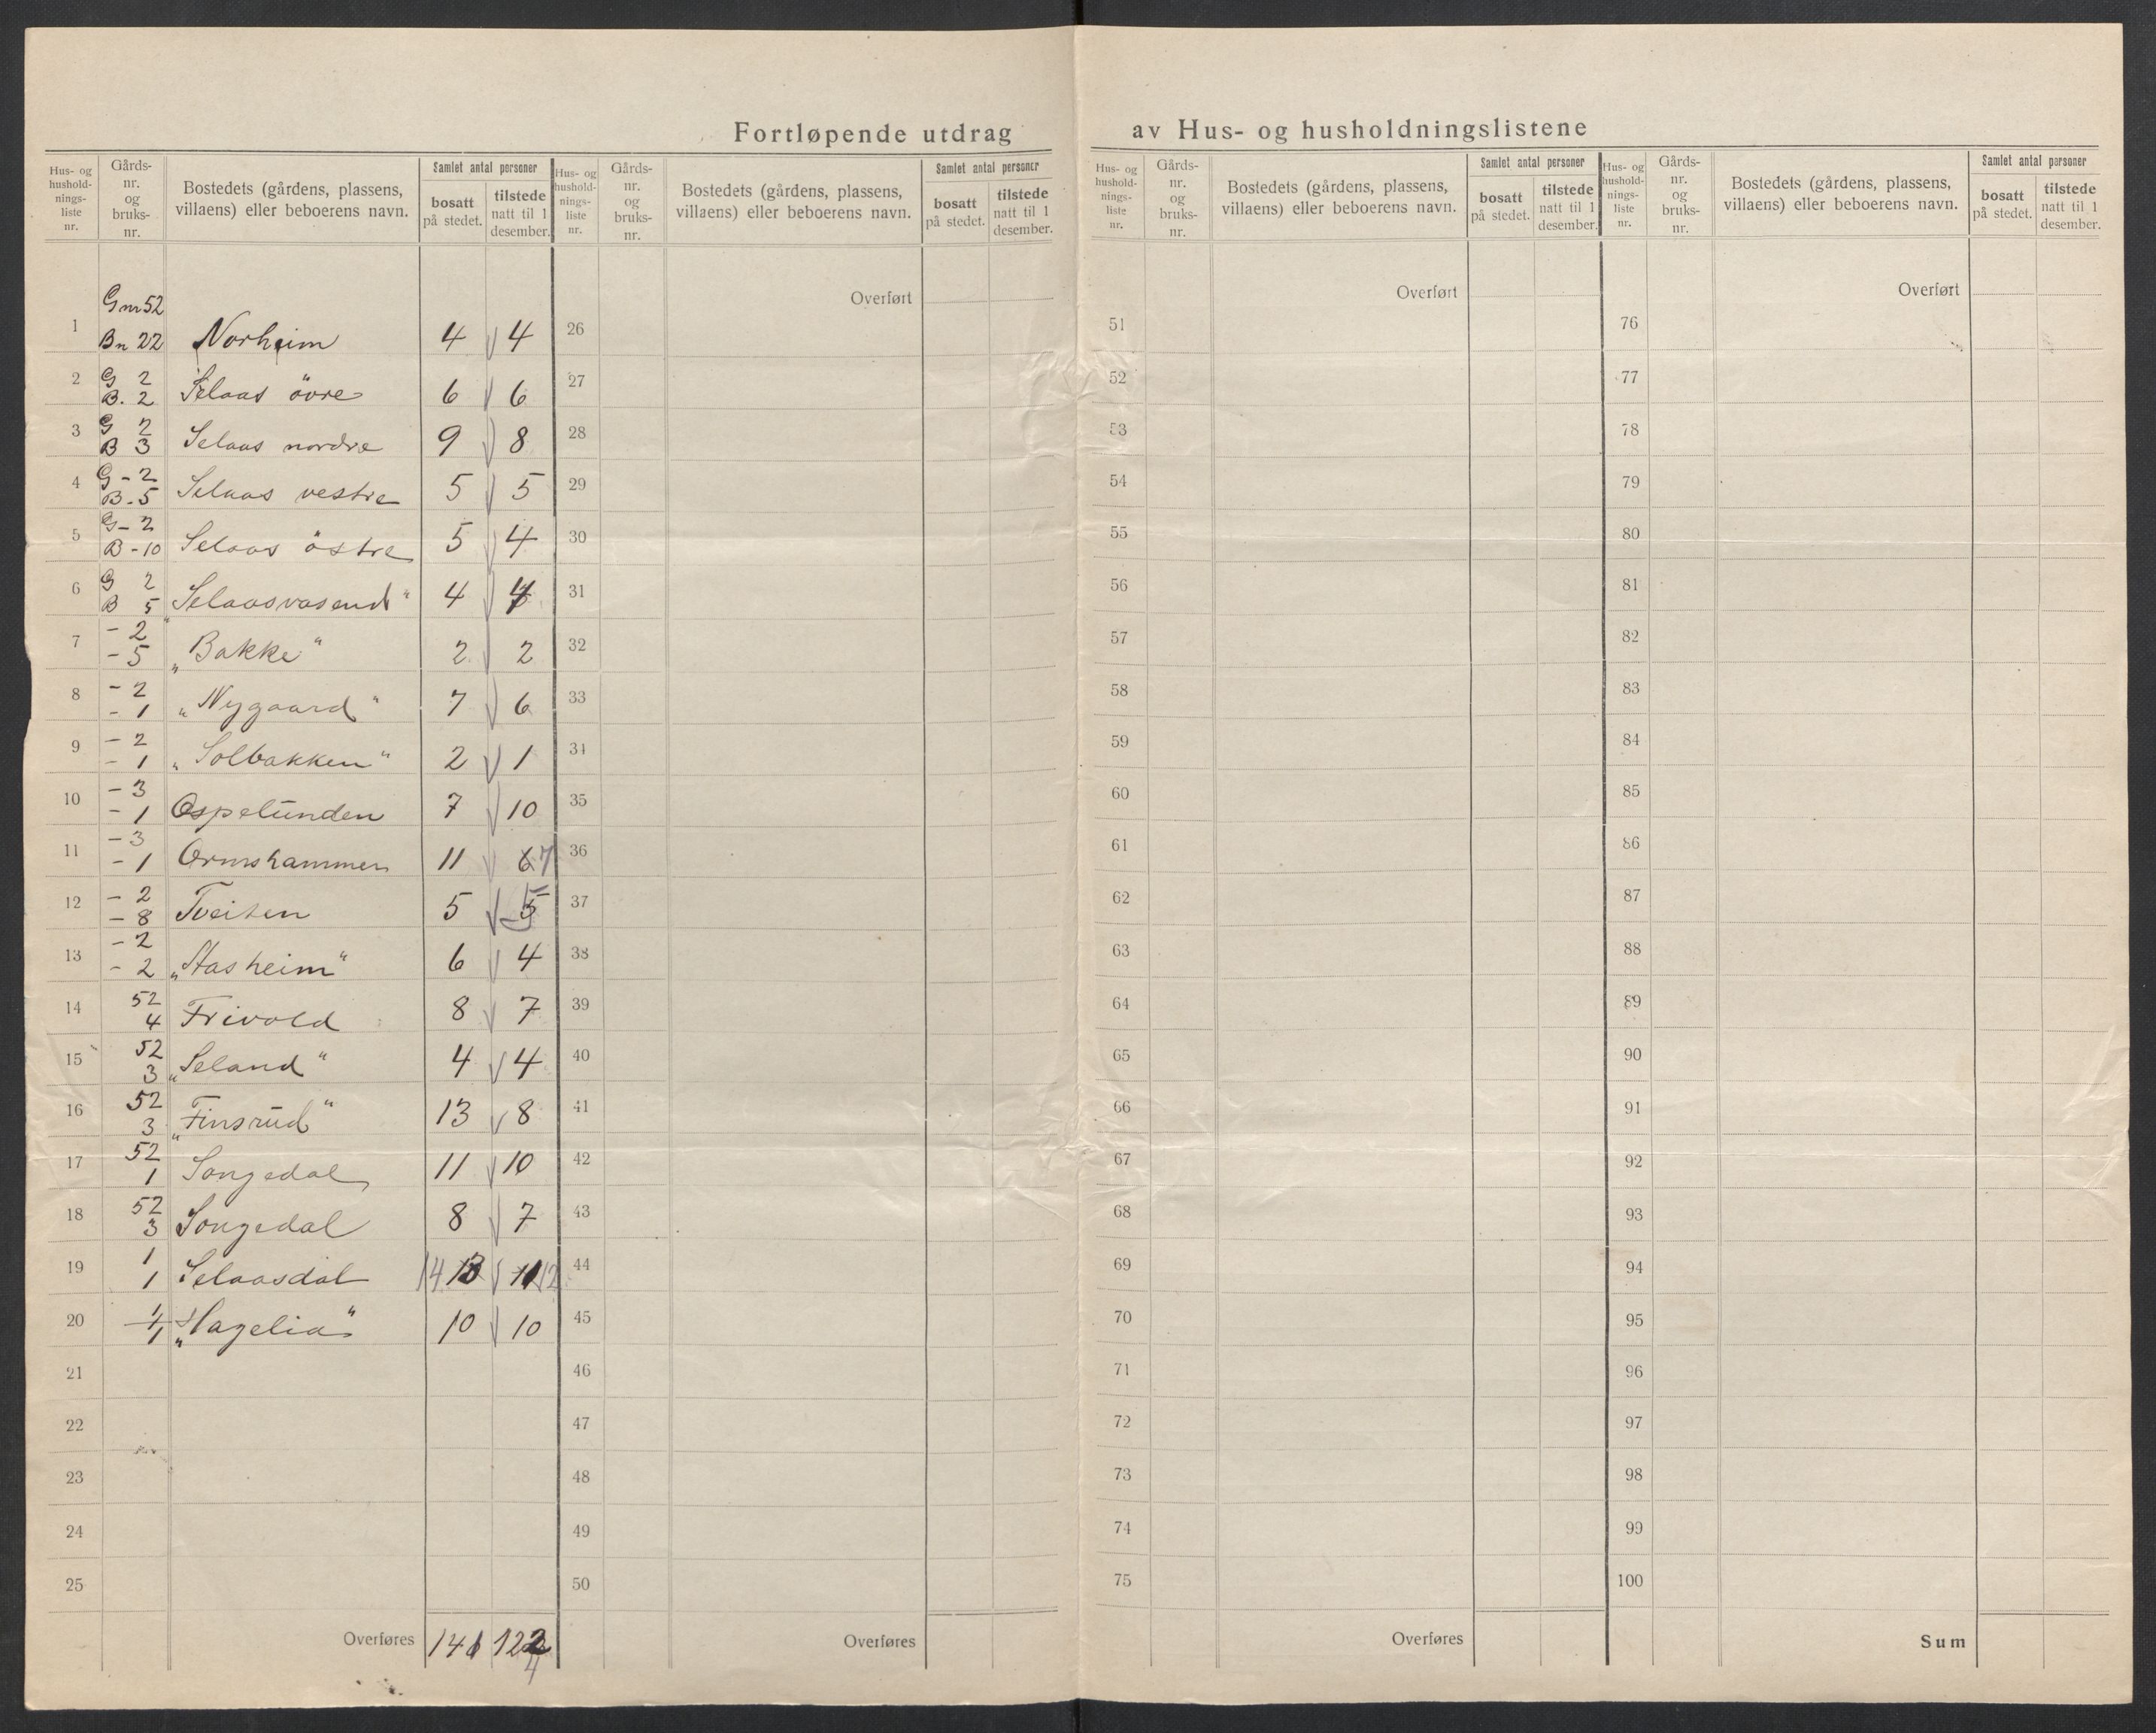 Fortløpende utdrag av Hus- og husholdningslistene
Hus- og hushold-nings-liste nr.
Gårds-nr. og bruks-nr.
Bostedets (gårdens, plassens, villaens) eller beboerens navn.
Samlet antal personer
bosatt på stedet.
tilstede natt til 1 desember.
Hus- og hushold-nings-liste nr.
Gårds-nr. og bruks-nr.
Bostedets (gårdens, plassens, villaens) eller beboerens navn.
Samlet antal personer
bosatt på stedet.
tilstede natt til 1 desember.
Hus- og hushold-nings-liste nr.
Gårds-nr. og bruks-nr.
Bostedets (gårdens, plassens, villaens) eller beboerens navn.
Samlet antal personer
bosatt på stedet.
tilstede natt til 1 desember.
Hus- og hushold-nings-liste nr.
Gårds-nr. og bruks-nr.
Bostedets (gårdens, plassens, villaens) eller beboerens navn.
Samlet antal personer
bosatt på stedet.
tilstede natt til 1 desember.
Overført Overført Overført
1 Gnr 52 Bn 22 Norheim 4 4 26 51 76
2 G 2 B. 2 Selaas övre 6 6 27 52 77
3 G 2 B 3 Selaas nordre 9 8 28 53 78
4 G - 2 B - 5 Selaas vestre 5 5 29 54 79
5 G - 2 B - 10 Selaas östre 5 4 30 55 80
6 G 2 B 5 "Selaasvasend" 4 4 31 56 81
7 - 2 - 5 „Bakke" 2 2 32 57 82
8 - 2 - 1 „Nygaard" 7 6 33 58 83
9 - 2 - 1 „Solbakken" 2 1 34 59 84
10 - 3 - 1 Ospelunden 7 10 35 60 85
11 - 3 - 1 Ormshammer 11 6 7 36 61 86
12 - 2 - 8 Tveiten 5 5 37 62 87
13 - 2 - 2 „Aasheim" 6 4 38 63 88
14 52 4 Frivold 8 7 39 64 89
15 52 3 „Seland" 4 4 40 65 90
16 52 3 „Finsrud" 13 8 41 66 91
17 52 1 Songedal 11 10 42 67 92
18 52 3 Songedal 8 7 43 68 93
19 1 1 Selaasdal 14 13 11 12 44 69 94
20 1 1 „Hagelia" 10 10 45 70 95
21 46 71 96
22 47 72 97
23 48 73 98
24 49 74 99
25 50 75 100
Overføres 141 122 Overføres Overføres Sum
4